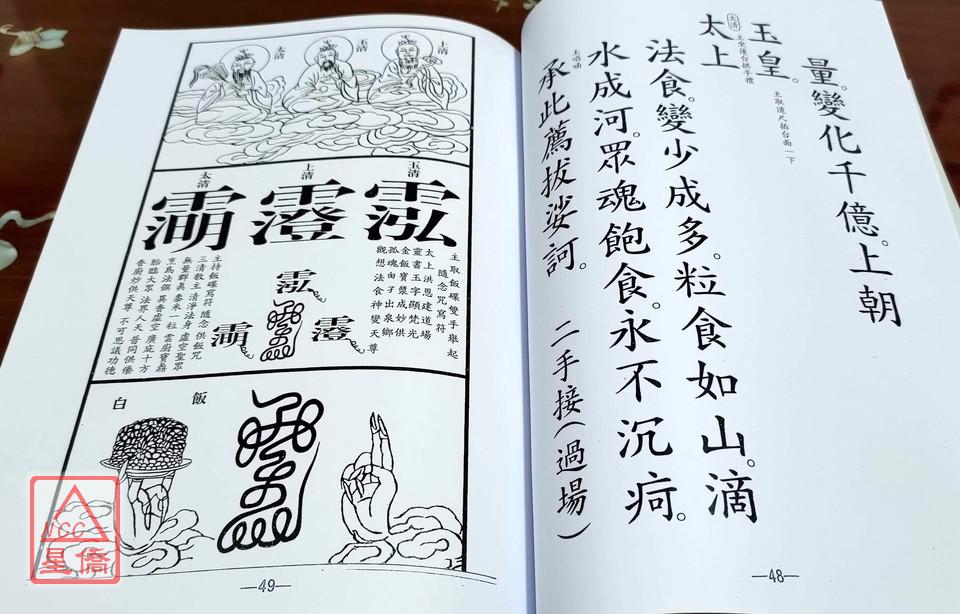 量。變化千億。上朝
玉皇。
主取道尺拍台面一下
太上
太清
主坐蓮台拱手禮
法食。變少成多。粒食如山。滴
水成河。眾魂飽食。永不沉疴。
主唱喃
承此薦拔娑訶。 二手接(過場)
—48—
上清
玉清
太清
玉清
上清
太清
主取飯碟雙手舉起
隨念咒寫符
太上洪恩建道場
靈書玉字顯梵光
金飯寶漿成妙供
孤魂由子出泉鄉
觀想法食神變天尊
主持飯碟寫符 隨念供飯咒
三清教主 清淨法身 虛空聖眾
無量群真 黍米一粒 雲廚寶鼎
烹為法饌 異香虛空 廣庇十方
胎臨大眾 法界人天 普同供養
香廚妙供天尊 不可思議功德
白
飯
—49—
VCC
星僑